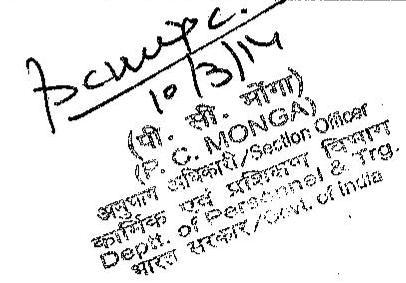 10/3/14
(पी. सी. मोंगा)
(P. C. MONGA)
अनुभाग अधिकारी/Section Officer
कार्मिक एवं प्रशिक्षण विभाग
Deptt. of Personnel & Trg.
भारत सरकार/Govt. of India